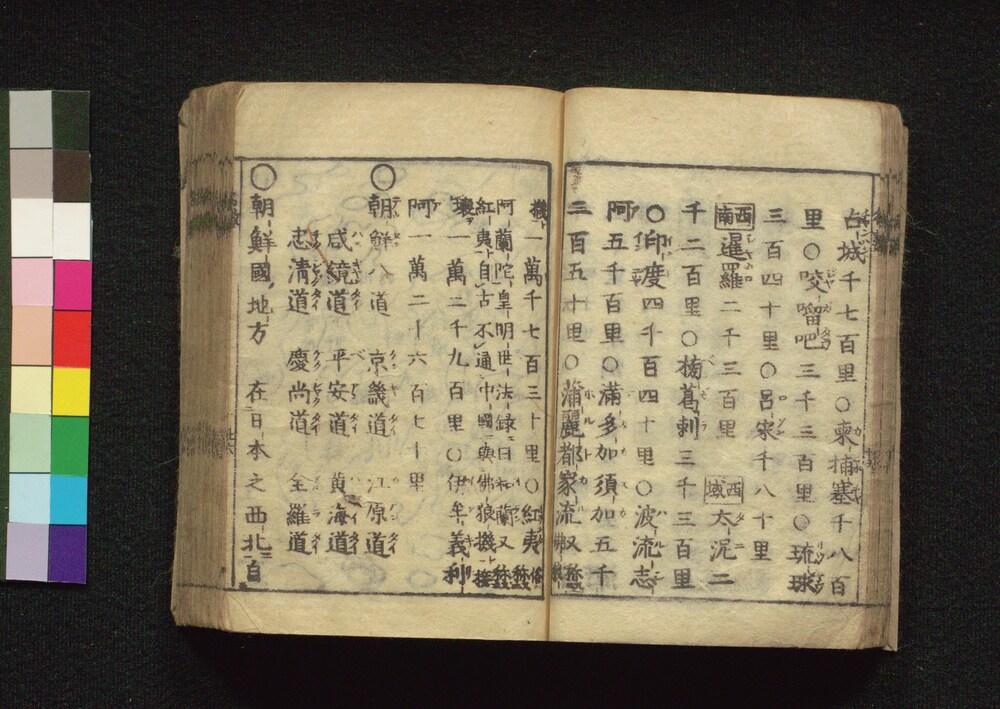 占城千七百里○柬捕塞千八百
里○咬𠺕吧三千三百里○琉球
三百四十里○呂宋千八十里
西南 暹羅二千三百里 西域 太泥二
千二百里○摘葛剌三千三百里
○印度四千百四十里○波流志
阿五千百里○満多加須加五千
二百五十里○蒲麗都家流又稱佛狼
機一萬千七百三十里○紅夷俗稱
阿蘭陀皇明世法録曰和蘭又
紅夷自古不通中國與佛狼機接
壤一萬二千九百里○伊牟義利
阿一萬二千六百七十里
○朝鮮八道 京畿道 江原道
咸鏡道 平安道 黄海道
忠清道 慶尚道 全羅道
○朝鮮國地方 在日本之西北自